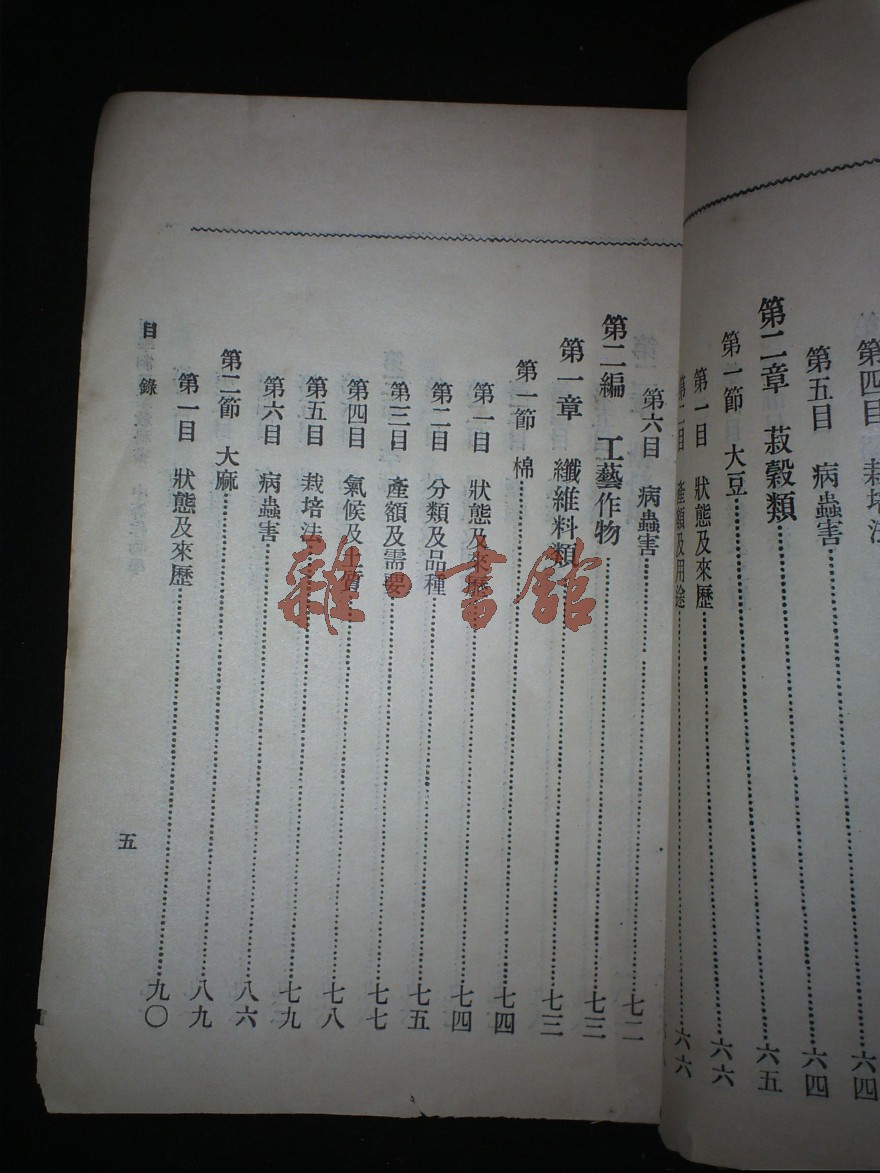 第四目 栽培法 六四
第五目 病蟲害 六四
第二章 菽穀類 六五
第一節 大豆 六六
第一目 狀態及來歷 六六
第二目 產額及用途 六六
第六目 病蟲害 七二
第二編 工藝作物 七三
第一章 纖維料類 七三
第一節 棉 七四
第一目 狀態及來歷 七四
第二目 分類及品種 七五
第三目 產額及需要 七七
第四目 氣候及土質 七八
第五目 栽培法 七九
第六目 病蟲害 八六
第二節 大麻 八九
第一目 狀態及來歷 九〇
目錄
五
雜·書館